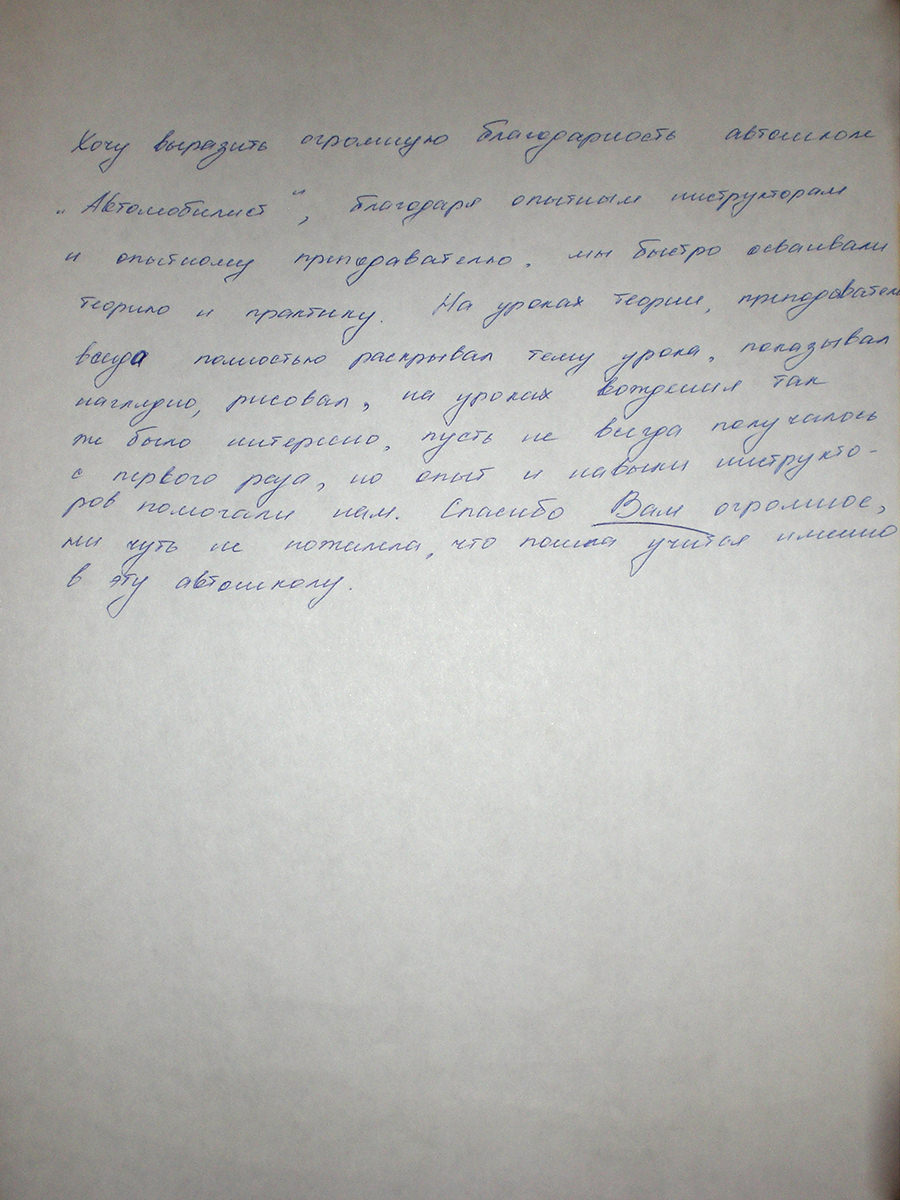 Хочу выразить огромную благодарность автошколе
"Автомобилист", благодаря опытным инструкторам
и опытному преподавателю, мы быстро осваивали
теорию и практику. На уроках теории, преподаватель
всегда полностью раскрывал тему урока, показывал
наглядно, рисовал, на уроках вождения так
же было интересно, пусть не всегда получалось
с первого раза, но опыт и навыки инструкто-
ров помогали нам. Спасибо Вам огромное,
ни чуть не пожалела, что пошла учится именно
в эту автошколу.